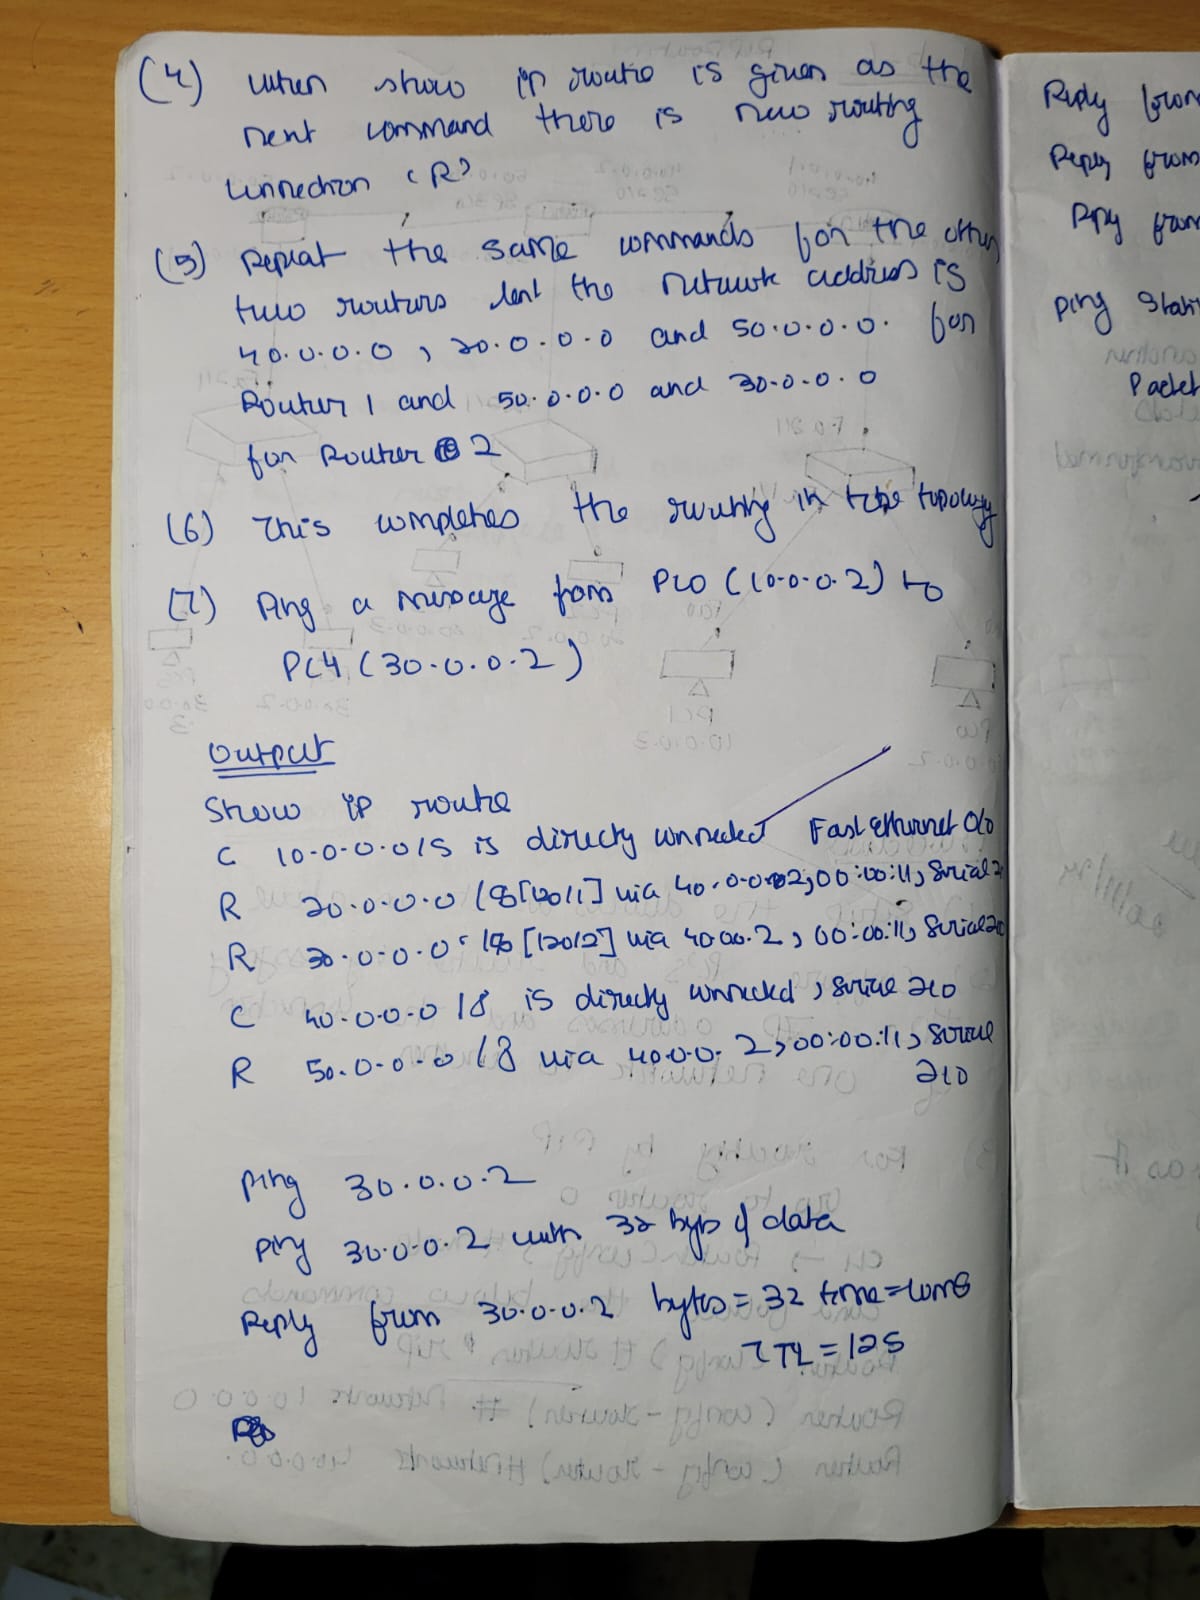 (4) When show ip route is given as the
next command there is new routing
connection 'R'
(5) Repeat the same commands for the other
two routers but the network address is
40.0.0.0, 20.0.0.0 and 50.0.0.0. for
Router 1 and 50.0.0.0 and 30.0.0.0
for Router 2
(6) This completes the routing in the topology
(7) Ping a message from PC0 (10.0.0.2) to
PC4 (30.0.0.2)
Output
Show ip route
C 10.0.0.0/8 is directly connected Fast Ethernet 0/0
R 20.0.0.0 /8 [120/1] via 40.0.0.2, 00:00:11, Serial 2/0
R 30.0.0.0 /8 [120/2] via 40.0.0.2, 00:00:11, Serial 2/0
C 40.0.0.0 /8 is directly connected, Serial 2/0
R 50.0.0.0 /8 via 40.0.0.2, 00:00:11, Serial
2/0
Ping 30.0.0.2
Ping 30.0.0.2 with 32 bytes of data
Reply from 30.0.0.2 bytes = 32 time = 10ms
TTL = 125
Reply from
Reply from
Rpy from
Ping Stati
Packet